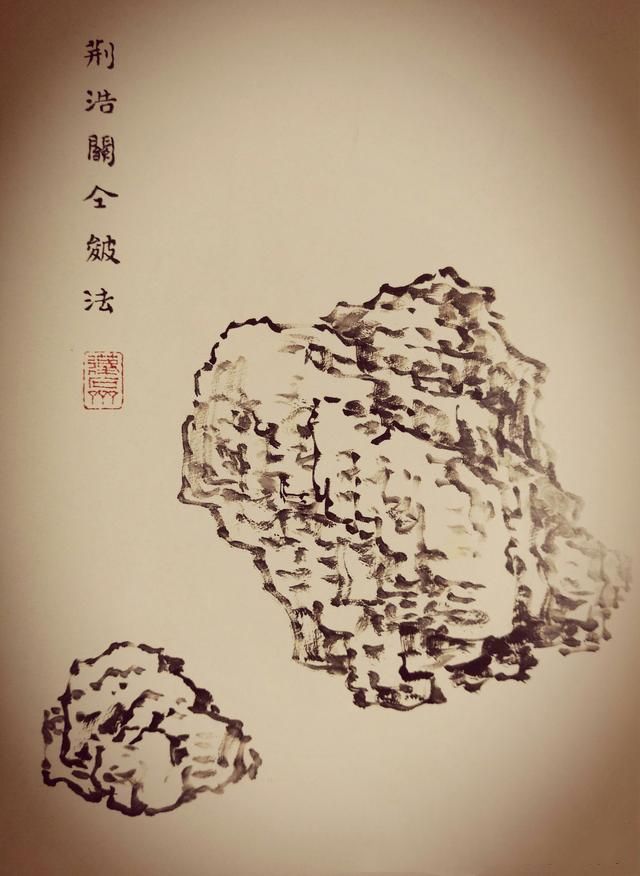 荆浩關仝皴法